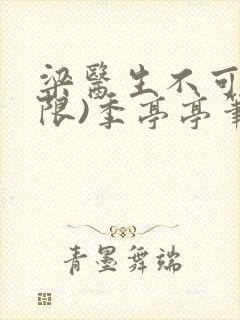 梁醫生不可
限)季亭亭筆
青墨舞端